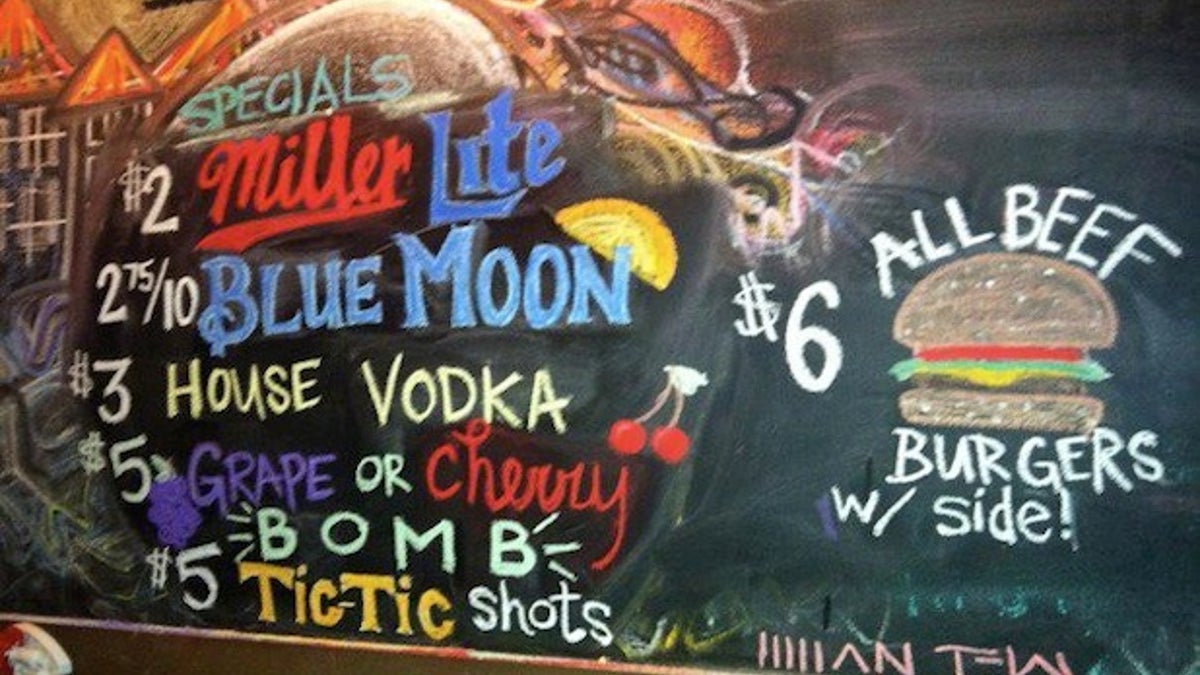 SPECIALS
$2 Miller Lite
2 75/10 BLUE MOON
$3 HOUSE VODKA
$5 GRAPE OR Cherry
BOMB
$5 Tic-Tic shots
$6 ALL BEEF
BURGERS
w/ side!